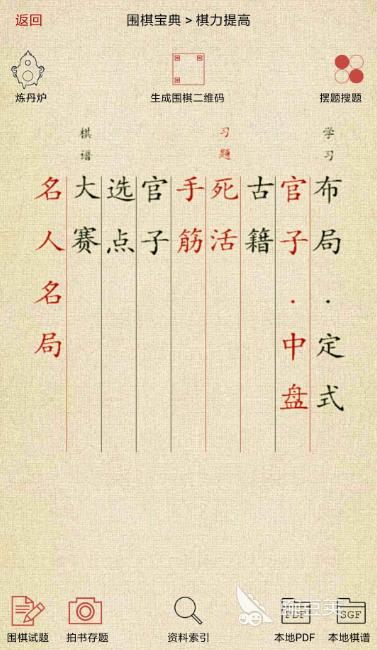 返回
围棋宝典 > 棋力提高
炼丹炉
生成围棋二维码
摆题搜题
学习
习题
棋谱
布局·定式
官子·中盘
古籍
死活
手筋
官子
选点
大赛
名人名局
围棋试题
拍书存题
资料索引
PDF
本地PDF
SGF
本地棋谱